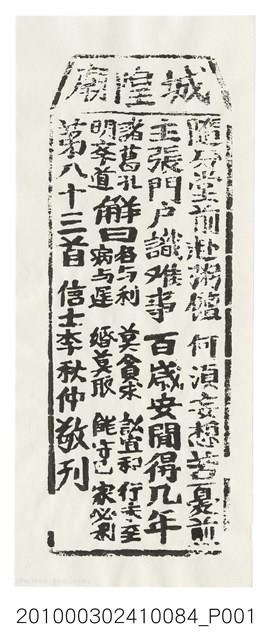 城隍廟
隨分堂前赴粥饘 何須妄想苦憂煎
主張門户識难事 百歲安閒得几年
諸葛孔明李道 解曰 名与利 莫貪求 訟宜和 行未至
病与遲 婚莫取 能守己 家必利
第八十三首 信士李秋仲敬刋
201000302410084_P001